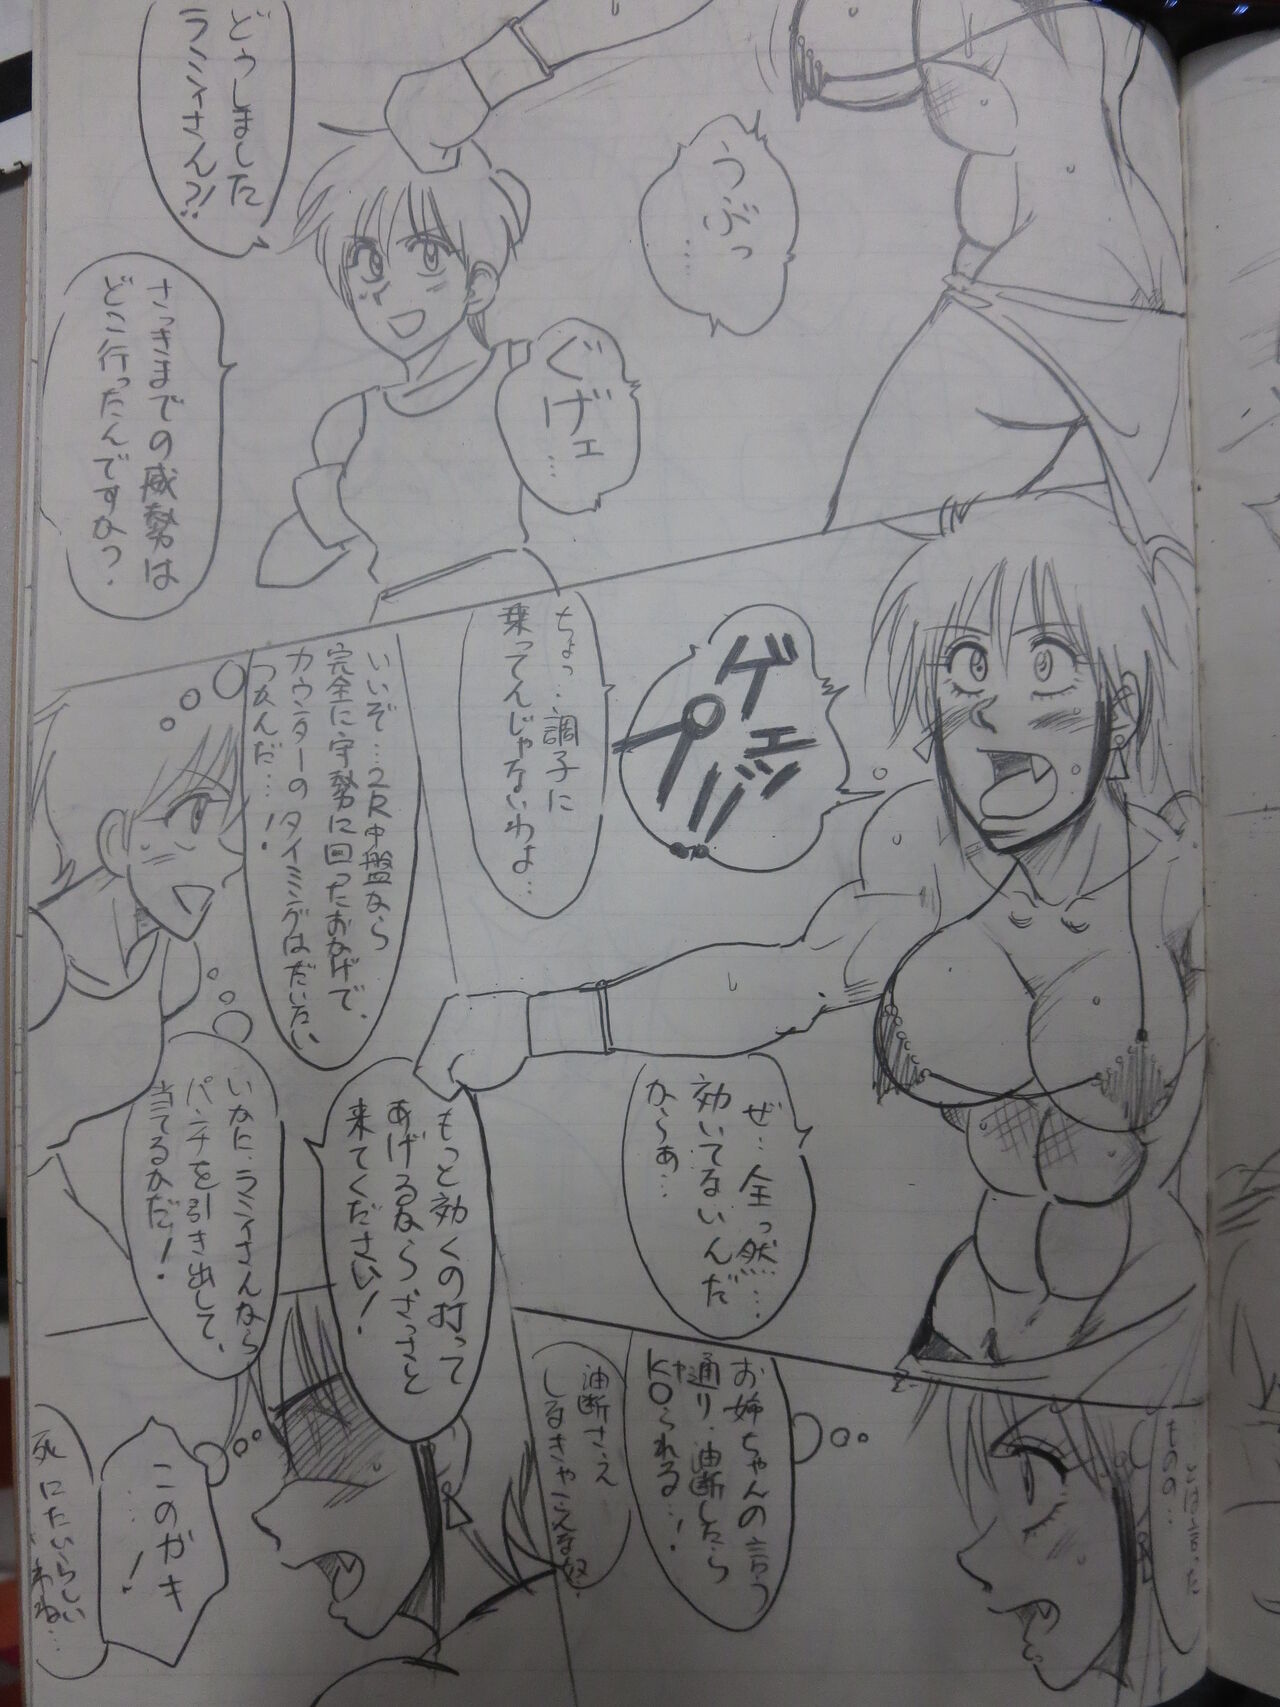 うぶっ
…
ぐげェ
…
どうしました
ラミィさん?!
さっきまでの威勢は
どこ行ったんですか?
ゲェッ
プッ!!
ちょっ…調子に
乗ってんじゃないわよ…
ぜ…全っ然…
効いてないんだ
から〜ぁ…
いいぞ…2R中盤なら
完全に守勢に回ったおかげで、
カウンターのタイミングはだいたい
つかんだ…!
いかに、ラミィさんなら
パンチを引き出して、
当てるかだ!
もっと効くの打って
あげるなら、ざっさと
来てください!
…とは言った
ものの…
お姉ちゃんの言う
通り、油断したら
KOられる…!
油断さえ
しなきゃ
このガキ
…!
死にたいらしい
わね…